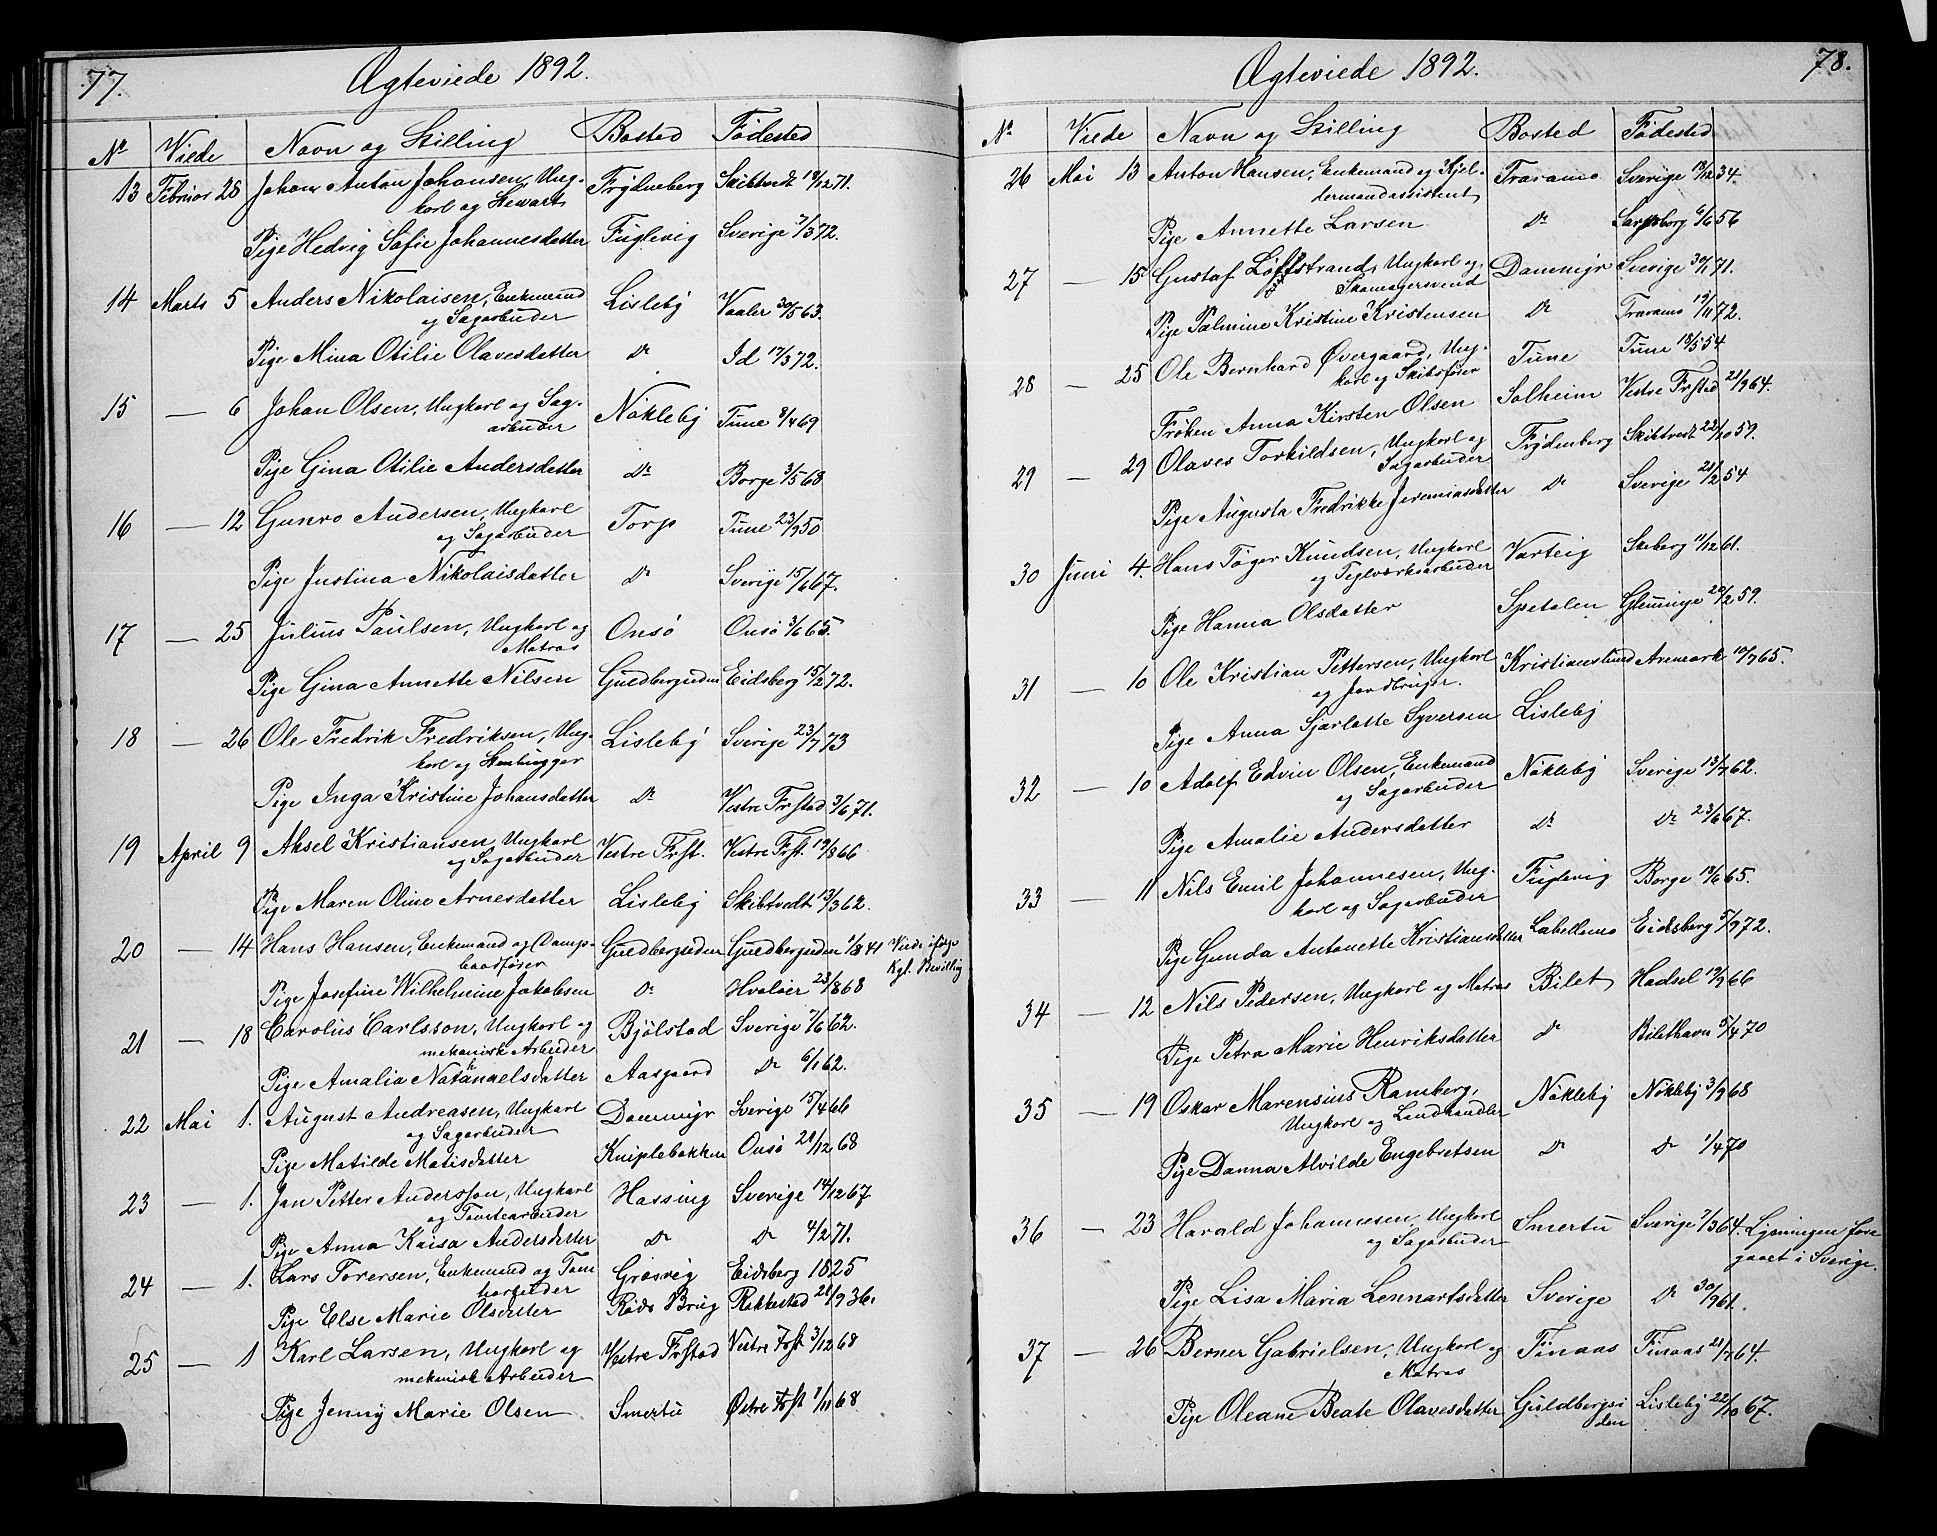 77.
Ægteviede 1892.
No Viede Navn og Stilling Bosted Födested
13 Februar 28 Johan Anton Johansen, Ung- Frydenberg Skibtvedt 12/12 71.
karl og Stewart
Pige Hedvig Sofie Johannesdatter Fuglevig Sverige 7/3 72.
14 Marts 5 Anders Nikolaisen, Enkemand Lisleby Vaaler 30/5 63.
og Sagarbeider
Pige Mina Otilie Olavesdatter Do Id 17/3 72.
15 — 6 Johan Olsen, Ungkarl og Sag- Nökleby Tune 8/4 69
arbeider
Pige Gina Otilie Andersdatter Do Borge 3/5 68
16 — 12 Gunro Andersen, Ungkarl Torp Tune 23/9 50
og Sagarbeider
Pige Justina Nikolaisdatter Do Sverige 15/6 67.
17 — 25 Julius Paulsen, Ungkarl og Onsö Onsö 3/6 65.
Matros
Pige Gina Annette Nilsen Guldbergsiden Eidsberg 15/2 72.
18 — 26 Ole Fredrik Fredriksen, Ung- Lisleby Sverige 23/7 73
karl og Stenhugger
Pige Inga Kristine Johansdatter Do Vestre Frstad 3/6 71.
19 April 9 Aksel Kristiansen, Ungkarl Vestre Frst. Vestre Frst. 19/8 66
og Sagarbeider
Pige Maren Oline Arnesdatter Lisleby Skibtvedt 13/3 62.
20 — 14 Hans Hansen, Enkemand og Damp- Guldbergsiden Guldbergsiden 1/8 41 Viede ifølge
baadfører Kgl. Bevilling
Pige Josefine Wilhelmine Jakobsen Do Hvaløer 28/8 68
21 — 18 Carolus Carlsson, Ungkarl og Bjölstad Sverige 7/6 62.
mekanisk Arbeider
Pige Amalia Natanaelsdatter Aasgaard Do 6/1 62.
22 Mai 1. August Andreasen, Ungkarl Dammyr Sverige 15/4 66
og Sagarbeider
Pige Matilde Matisdatter Kniplebakken Onsö 21/12 68
23 — 1. Jan Petter Andersson, Ungkarl Hassing Sverige 14/12 67
og Tomtearbeider
Pige Anna Kaisa Andersdatter Do Do 4/2 71.
24 — 1. Lars Torersen, Enkemand og Tom Gresvig Eidsberg 1825
tearbeider
Pige Else Marie Olsdatter Røds Brug Rakkestad 21/9 36.
25 — 1 Karl Larsen, Ungkarl og Vestre Frstad Vestre Frst 3/12 68
mekanisk Arbeider
Pige Jenny Marie Olsen Smertu Østre Frst 1/11 68
78.
Ægteviede 1892.
No Viede Navn og Stilling Bosted Födested
26 Mai 13 Anton Hansen, Enkemand og Kjel- Traramo Sverige 19/12 34.
dermandassistent
Pige Annette Larsen Do Sarpsborg 6/6 56
27 — 15 Gustaf Löfstrand, Ungkarl og Dammyr Sverige 30/1 71.
Skomagersvend
Pige Palmine Kristine Kristensen Do Traramo 19/11 72.
28 — 25 Ole Bernhard Øvergaard, Ung- Tune Tune 18/5 54
karl og Skibsfører
Frøken Anna Kirsten Olsen Solheim Vestre Frstad 21/9 64.
29 — 29 Olaves Torkildsen, Ungkarl og Frydenberg Skibtvedt 22/10 59.
Sagarbeider
Pige Augusta Fredrikke Jeremiasdatter Do Sverige 21/2 54
30 Juni 4. Hans Töger Knudsen, Ungkarl Varteig Skeberg 11/12 61.
og Teglverksarbeider
Pige Hanna Olsdatter Spetalen Glemminge 20/2 59.
31 — 10 Ole Kristian Pettersen, Ungkarl Kristianslund Aremark 10/7 65.
og Jordbruger.
Pige Anna Sjarlotte Syversen Lisleby
32 — 10 Adolf Edvin Olsen, Enkemand Nökleby Sverige 13/7 62.
og Sagarbeider
Pige Amalie Andersdatter Do Do 23/6 67.
33 — 11 Nils Emil Johannesen, Ung- Fuglevig Borge 19/6 65.
karl og Sagarbeider
Pige Gunda Antonette Kristiansdatter Labellamo Eidsberg 5/9 72.
34 — 12 Nils Pedersen, Ungkarl og Matros Bilet Hadsel 19/9 66
Pige Petra Marie Henriksdatter Do Bilethavn 5/4 70
35 — 19 Oskar Marensius Ramberg, Nökleby Nökleby 3/9 68
Ungkarl og Landhandler
Pige Danna Alvilde Engebretsen Do Do 1/4 70
36 — 23 Harald Johannesen, Ungkarl Smertu Sverige 7/3 64. Lysningen fore
og Sagarbeider gaaet i Sverige.
Pige Lisa Maria Lennartsdatter Sverige Do 30/9 61.
37 — 26 Berner Gabrielsen, Ungkarl og Tinaas Tinaas 21/7 64.
Matros
Pige Oleane Beate Olavesdatter Guldbergsi Lisleby 22/10 67.
den